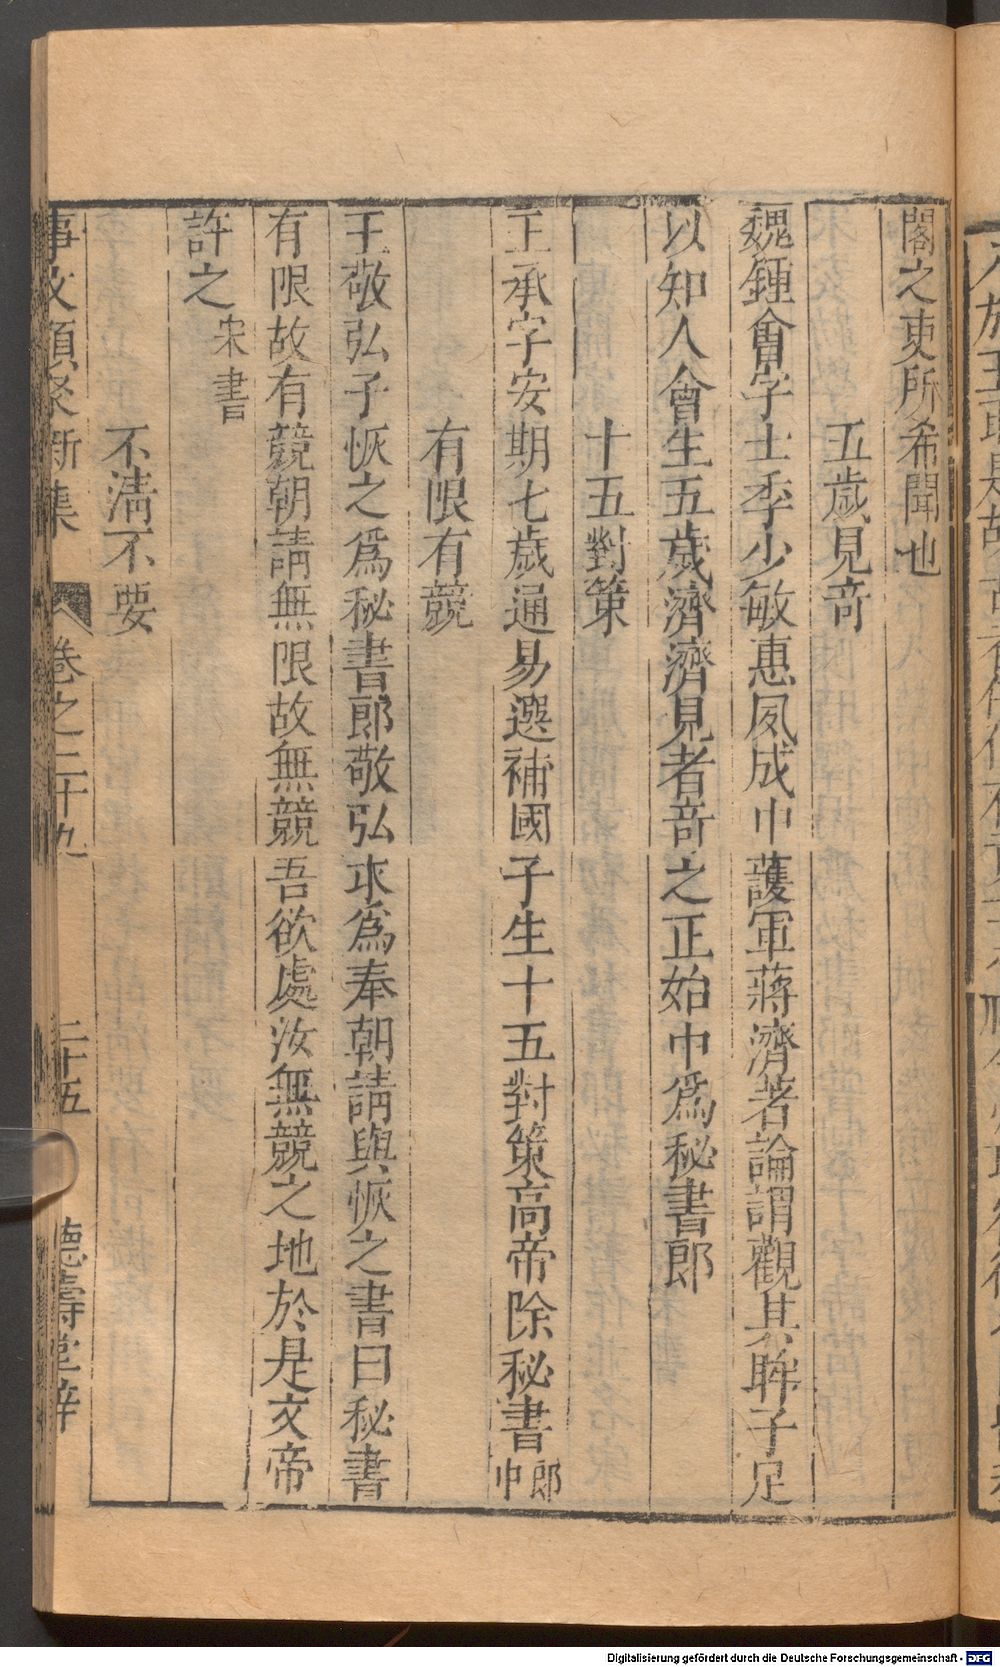 閣之吏所希聞也
五歲見竒
魏鍾會字士季少敏惠夙成中䕶軍蔣濟著論謂觀其眸子足
以知人會生五歲濟濟見者竒之正始中爲秘書郎
十五對策
王承字安期七歲通易選補國子生十五對策高帝除秘書郎中
有限有競
王敬弘子恢之爲秘書郎敬弘求爲奉朝請與恢之書曰秘書
有限故有競朝請無限故無競吾欲處汝無競之地於是文帝
許之宋書
不清不要
事文類聚新集 卷之二十九 二十五 德壽堂梓
Digitalisierung gefördert durch die Deutsche Forschungsgemeinschaft - DFG